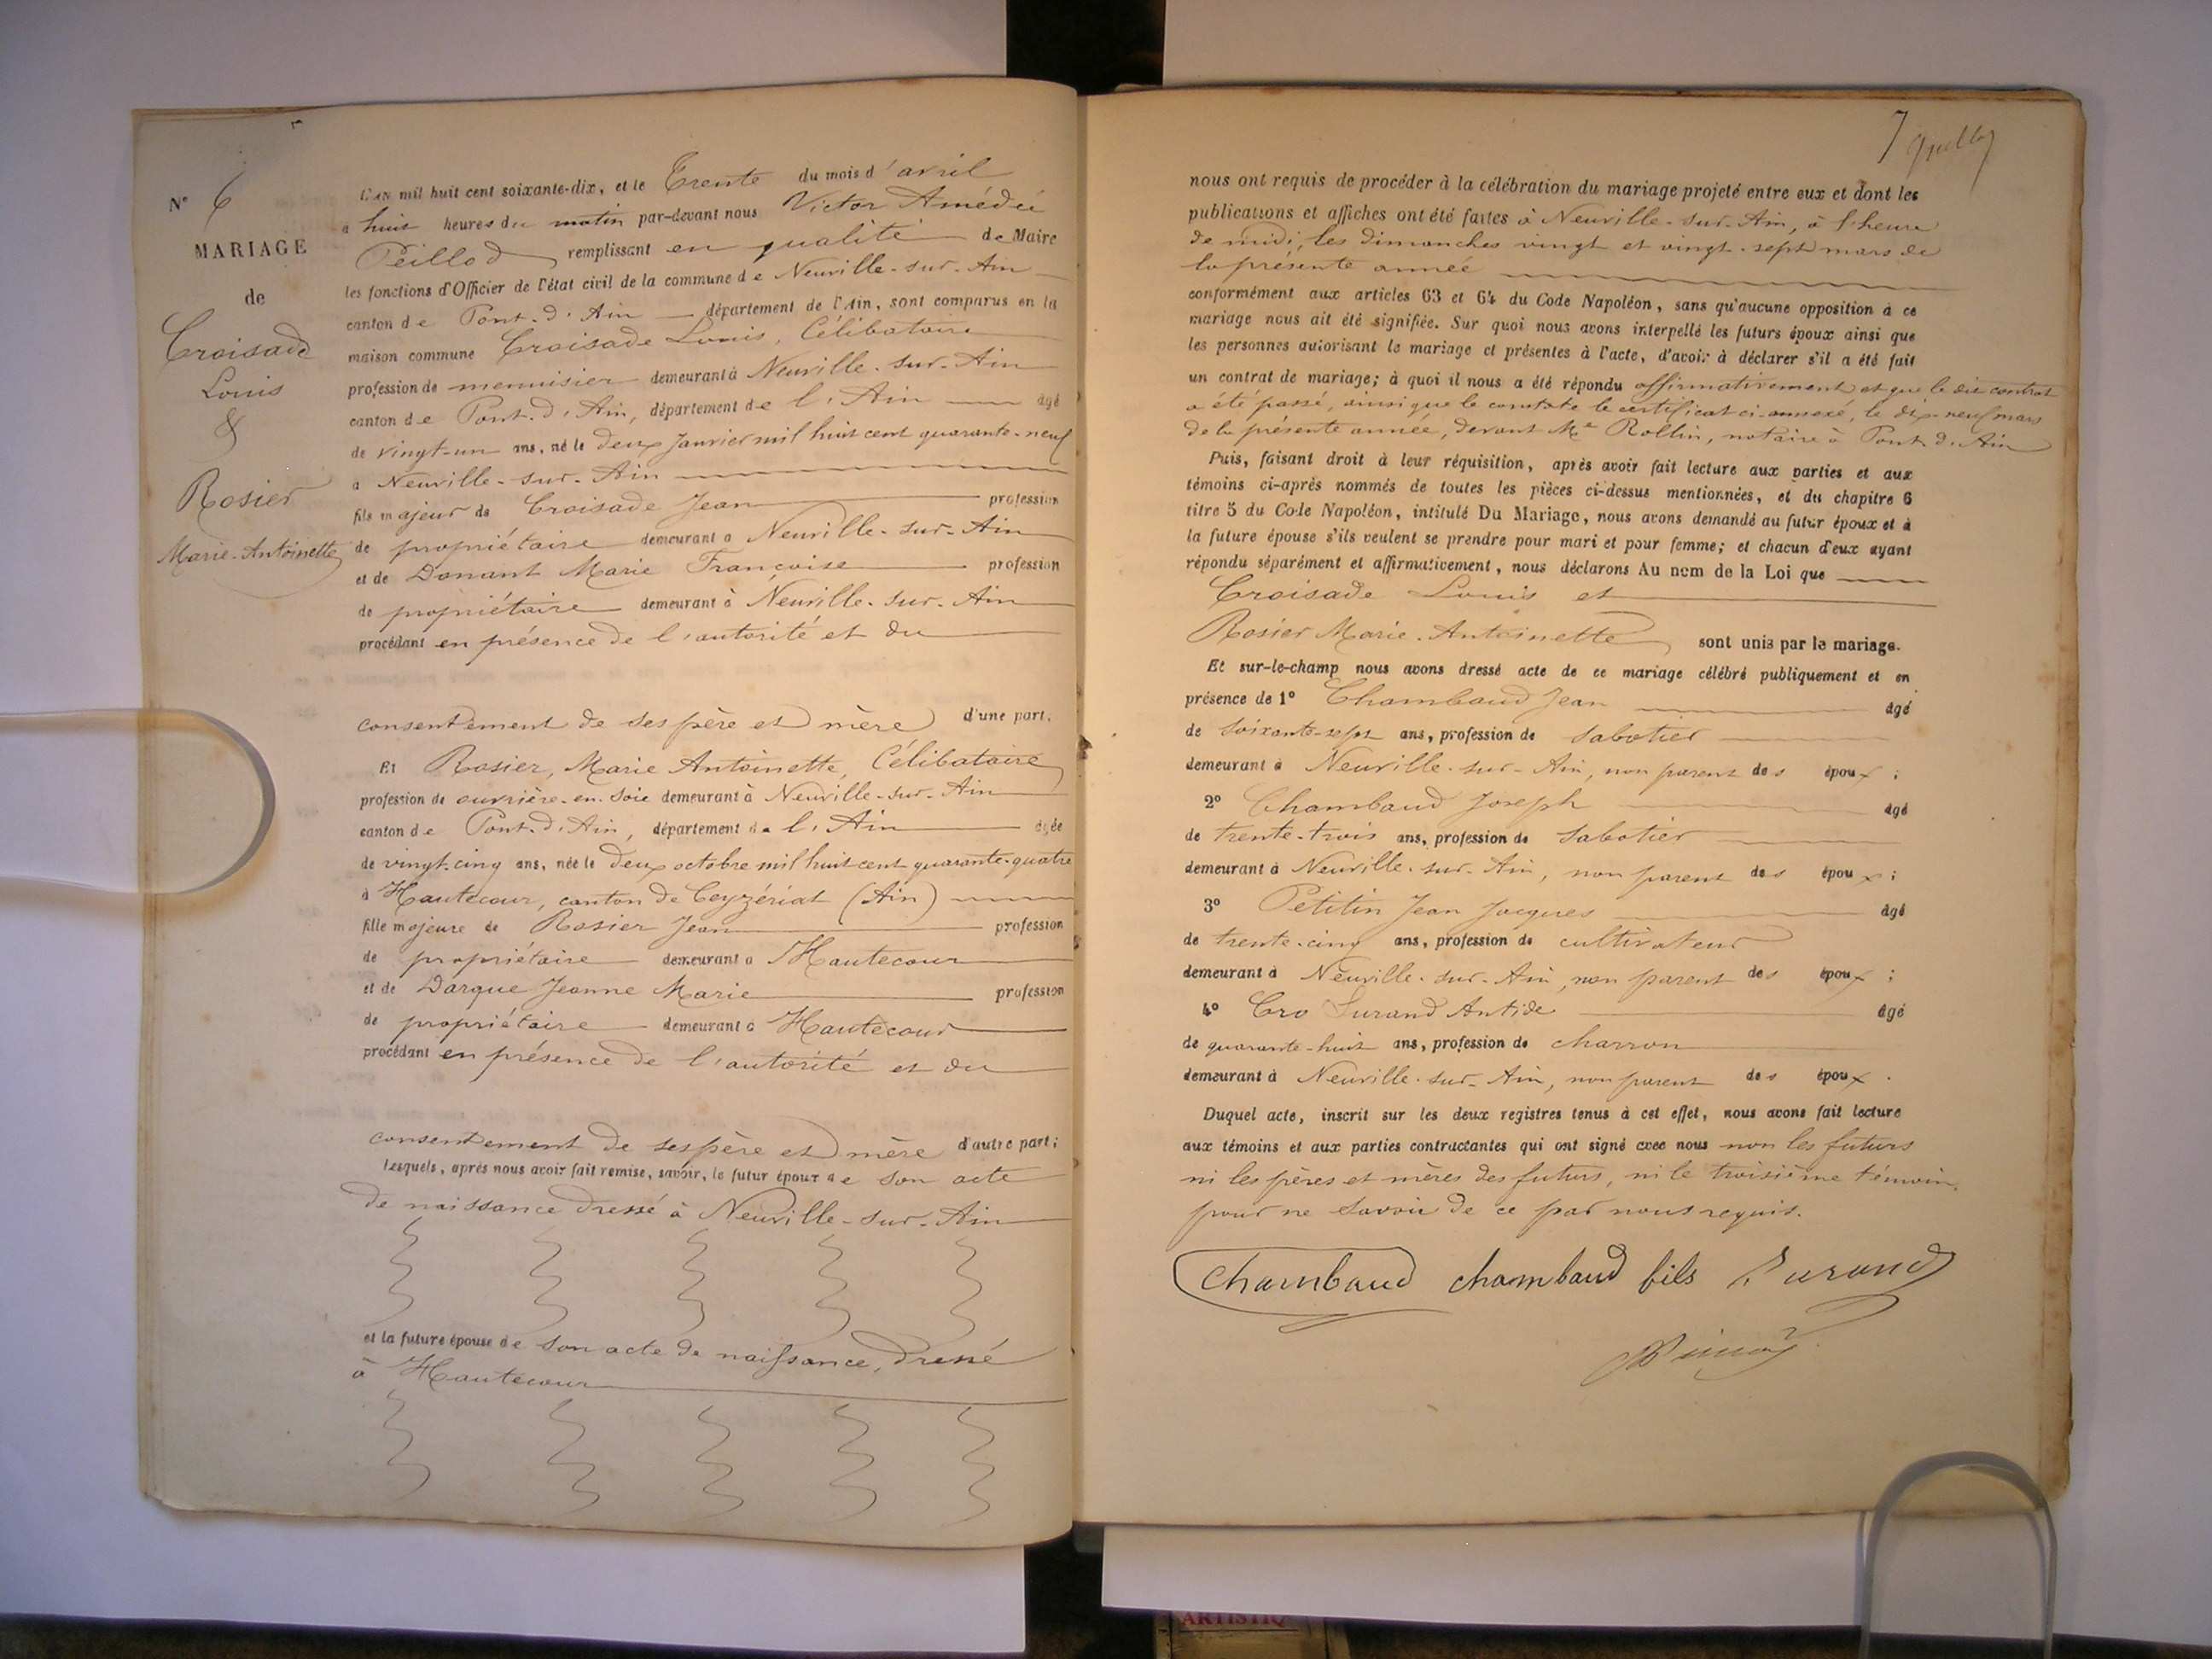 N° 6
MARIAGE
de
Croisade
Louis
&
Rosier
Marie-Antoinette
L'AN mil huit cent soixante-dix, et le Trente du mois d'avril
à huit heures du matin par-devant nous Victor Amédée
Peillod remplissant en qualité de Maire
les fonctions d'Officier de l'état civil de la commune de Neuville-sur-Ain
canton de Pont-d'Ain département de l'Ain, sont comparus en la
maison commune Croisade Louis, Célibataire
profession de menuisier demeurant à Neuville-sur-Ain
canton de Pont-d'Ain, département de l'Ain âgé
de vingt-un ans, né le deux Janvier mil huit cent quarante-neuf
à Neuville-sur-Ain
fils majeur de Croisade Jean profession
de propriétaire demeurant à Neuville-sur-Ain
et de Donant Marie Françoise profession
de propriétaire demeurant à Neuville-sur-Ain
procédant en présence de l'autorité et du
consentement de ses père et mère d'une part;
Et Rosier, Marie Antoinette, Célibataire
profession de ouvrière-en-soie demeurant à Neuville-sur-Ain
canton de Pont-d'Ain, département de l'Ain âgée
de vingt-cinq ans, née le deux octobre mil huit cent quarante-quatre
à Hautecour, canton de Ceyzériat (Ain)
fille majeure de Rosier Jean profession
de propriétaire demeurant à Hautecour
et de Darque Jeanne Marie profession
de propriétaire demeurant à Hautecour
procédant en présence de l'autorité et du
consentement de ses père et mère d'autre part;
lesquels, après nous avoir fait remise, savoir, le futur époux de son acte
de naissance dressé à Neuville-sur-Ain
et la future épouse de son acte de naissance, dressé
à Hautecour
7
nous ont requis de procéder à la célébration du mariage projeté entre eux et dont les
publications et affiches ont été faites à Neuville-sur-Ain, à l'heure
de midi, les dimanches vingt et vingt-sept mars de
la présente année
conformément aux articles 63 et 64 du Code Napoléon, sans qu'aucune opposition à ce
mariage nous ait été signifiée. Sur quoi nous avons interpellé les futurs époux ainsi que
les personnes autorisant le mariage et présentes à l'acte, d'avoir à déclarer s'il a été fait
un contrat de mariage; à quoi il nous a été répondu affirmativement et que le dit contrat
a été passé, ainsi que le constate le certificat ci-annexé, le dix-neuf mars
de la présente année, devant Me Rollin, notaire à Pont-d'Ain
Puis, faisant droit à leur réquisition, après avoir fait lecture aux parties et aux
témoins ci-après nommés de toutes les pièces ci-dessus mentionnées, et du chapitre 6
titre 5 du Code Napoléon, intitulé Du Mariage, nous avons demandé au futur époux et à
la future épouse s'ils veulent se prendre pour mari et pour femme; et chacun d'eux ayant
répondu séparément et affirmativement, nous déclarons Au nom de la Loi que
Croisade Louis et
Rosier Marie-Antoinette sont unis par le mariage.
Et sur-le-champ nous avons dressé acte de ce mariage célébré publiquement et en
présence de 1° Chambaud Jean âgé
de soixante-sept ans, profession de sabotier
demeurant à Neuville-sur-Ain, non parent des époux;
2° Chambaud Joseph âgé
de trente-trois ans, profession de sabotier
demeurant à Neuville-sur-Ain, non parent des époux;
3° Petitin Jean Jacques âgé
de trente-cinq ans, profession de cultivateur
demeurant à Neuville-sur-Ain, non parent des époux;
4° Cro Durand Antide âgé
de quarante-huit ans, profession de charron
demeurant à Neuville-sur-Ain, non parent des époux.
Duquel acte, inscrit sur les deux registres tenus à cet effet, nous avons fait lecture
aux témoins et aux parties contractantes qui ont signé avec nous non les futurs
ni les pères et mères des futurs, ni le troisième témoin,
pour ne savoir de ce par nous requis.
Chambaud chambaud fils Durand
ARTISTIQ